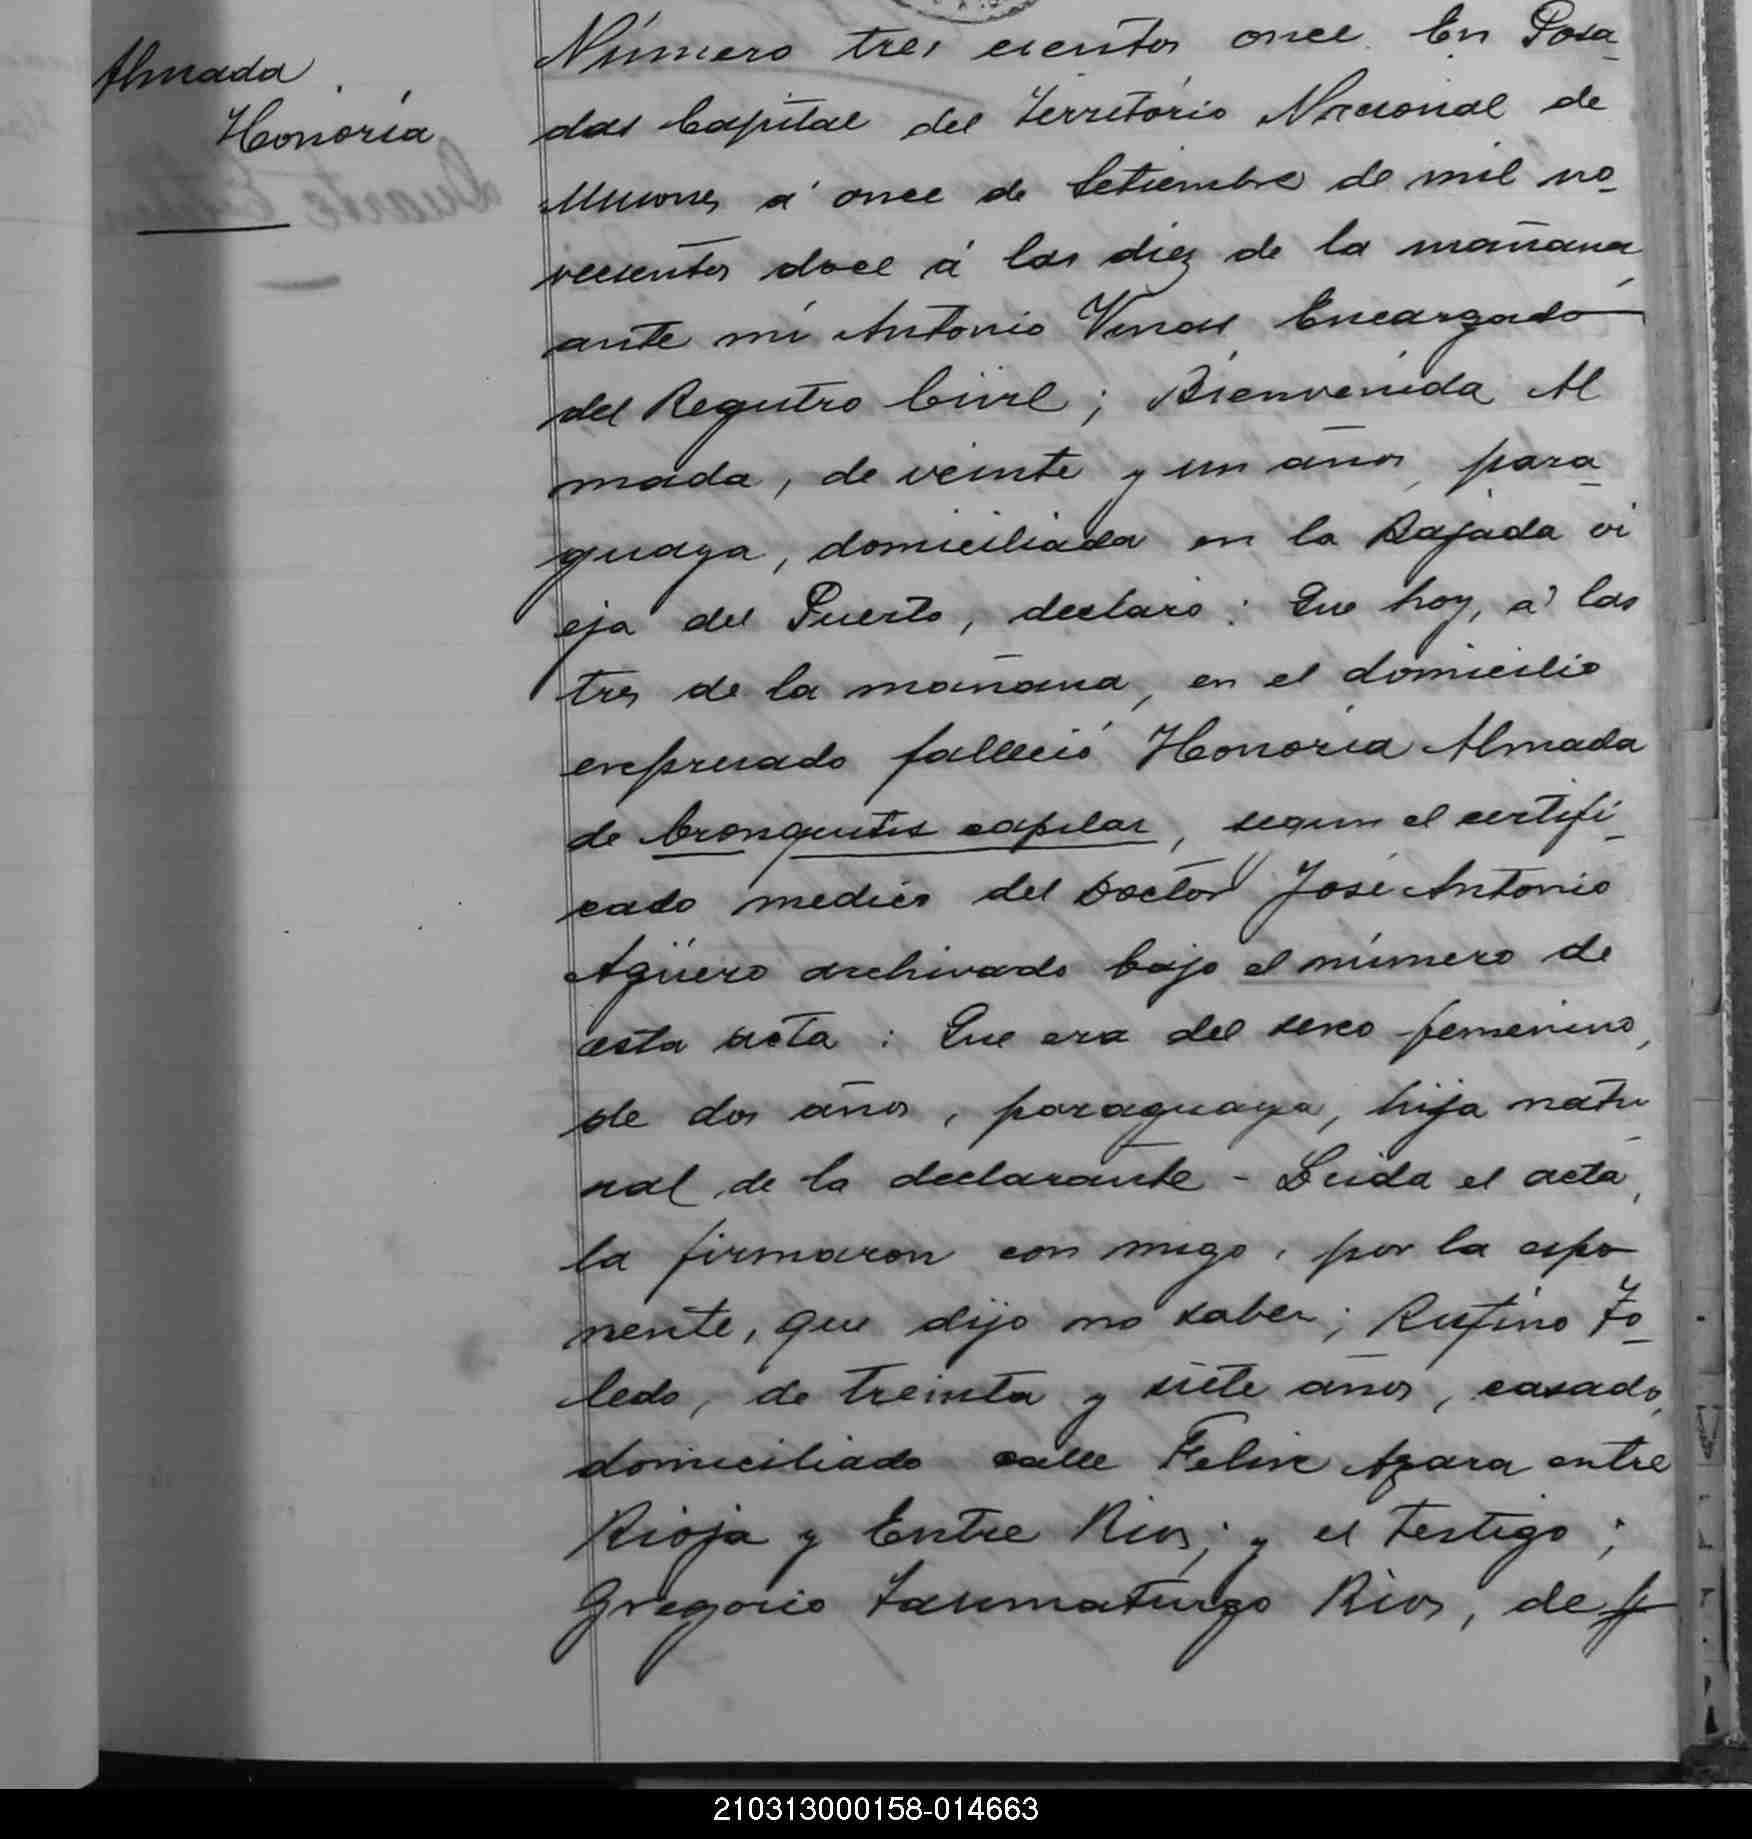 Almada
Honoria
Número tres cientos once. En Posa
das Capital del Territorio Nacional de
Misiones á once de Setiembre de mil no
vecientos doce á las diez de la mañana
ante mi Antonio Vinas Encargado
del Registro Civil; Bienvenida Al
mada, de veinte y un años, para
guaya, domiciliada en la Bajada vi
eja del Puerto, declaró: Que hoy, á las
tres de la mañana, en el domicilio
expresado falleció Honoria Almada
de bronquitis capilar, segun el certifi
cado medico del Doctor José Antonio
Agüero archivado bajo el número de
esta acta: Que era del sexo femenino,
de dos años, paraguaya, hija natu
ral de la declarante - Leida el acta,
la firmaron con migo, por la espo
nente, que dijo no saber; Rufino To
ledo, de treinta y siete años, casado,
domiciliado calle Felix Azara entre
Rioja y Entre Rios; y el testigo;
Gregorio Taumaturgo Rios, de
210313000158-014663